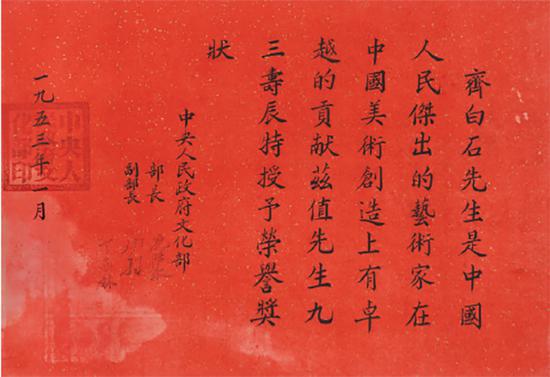 齊白石先生是中國
人民傑出的藝術家在
中國美術創造上有卓
越的貢献茲值先生九
三壽辰特授予榮譽獎
狀
中央人民政府文化部
部長
副部長
一九五三年一月